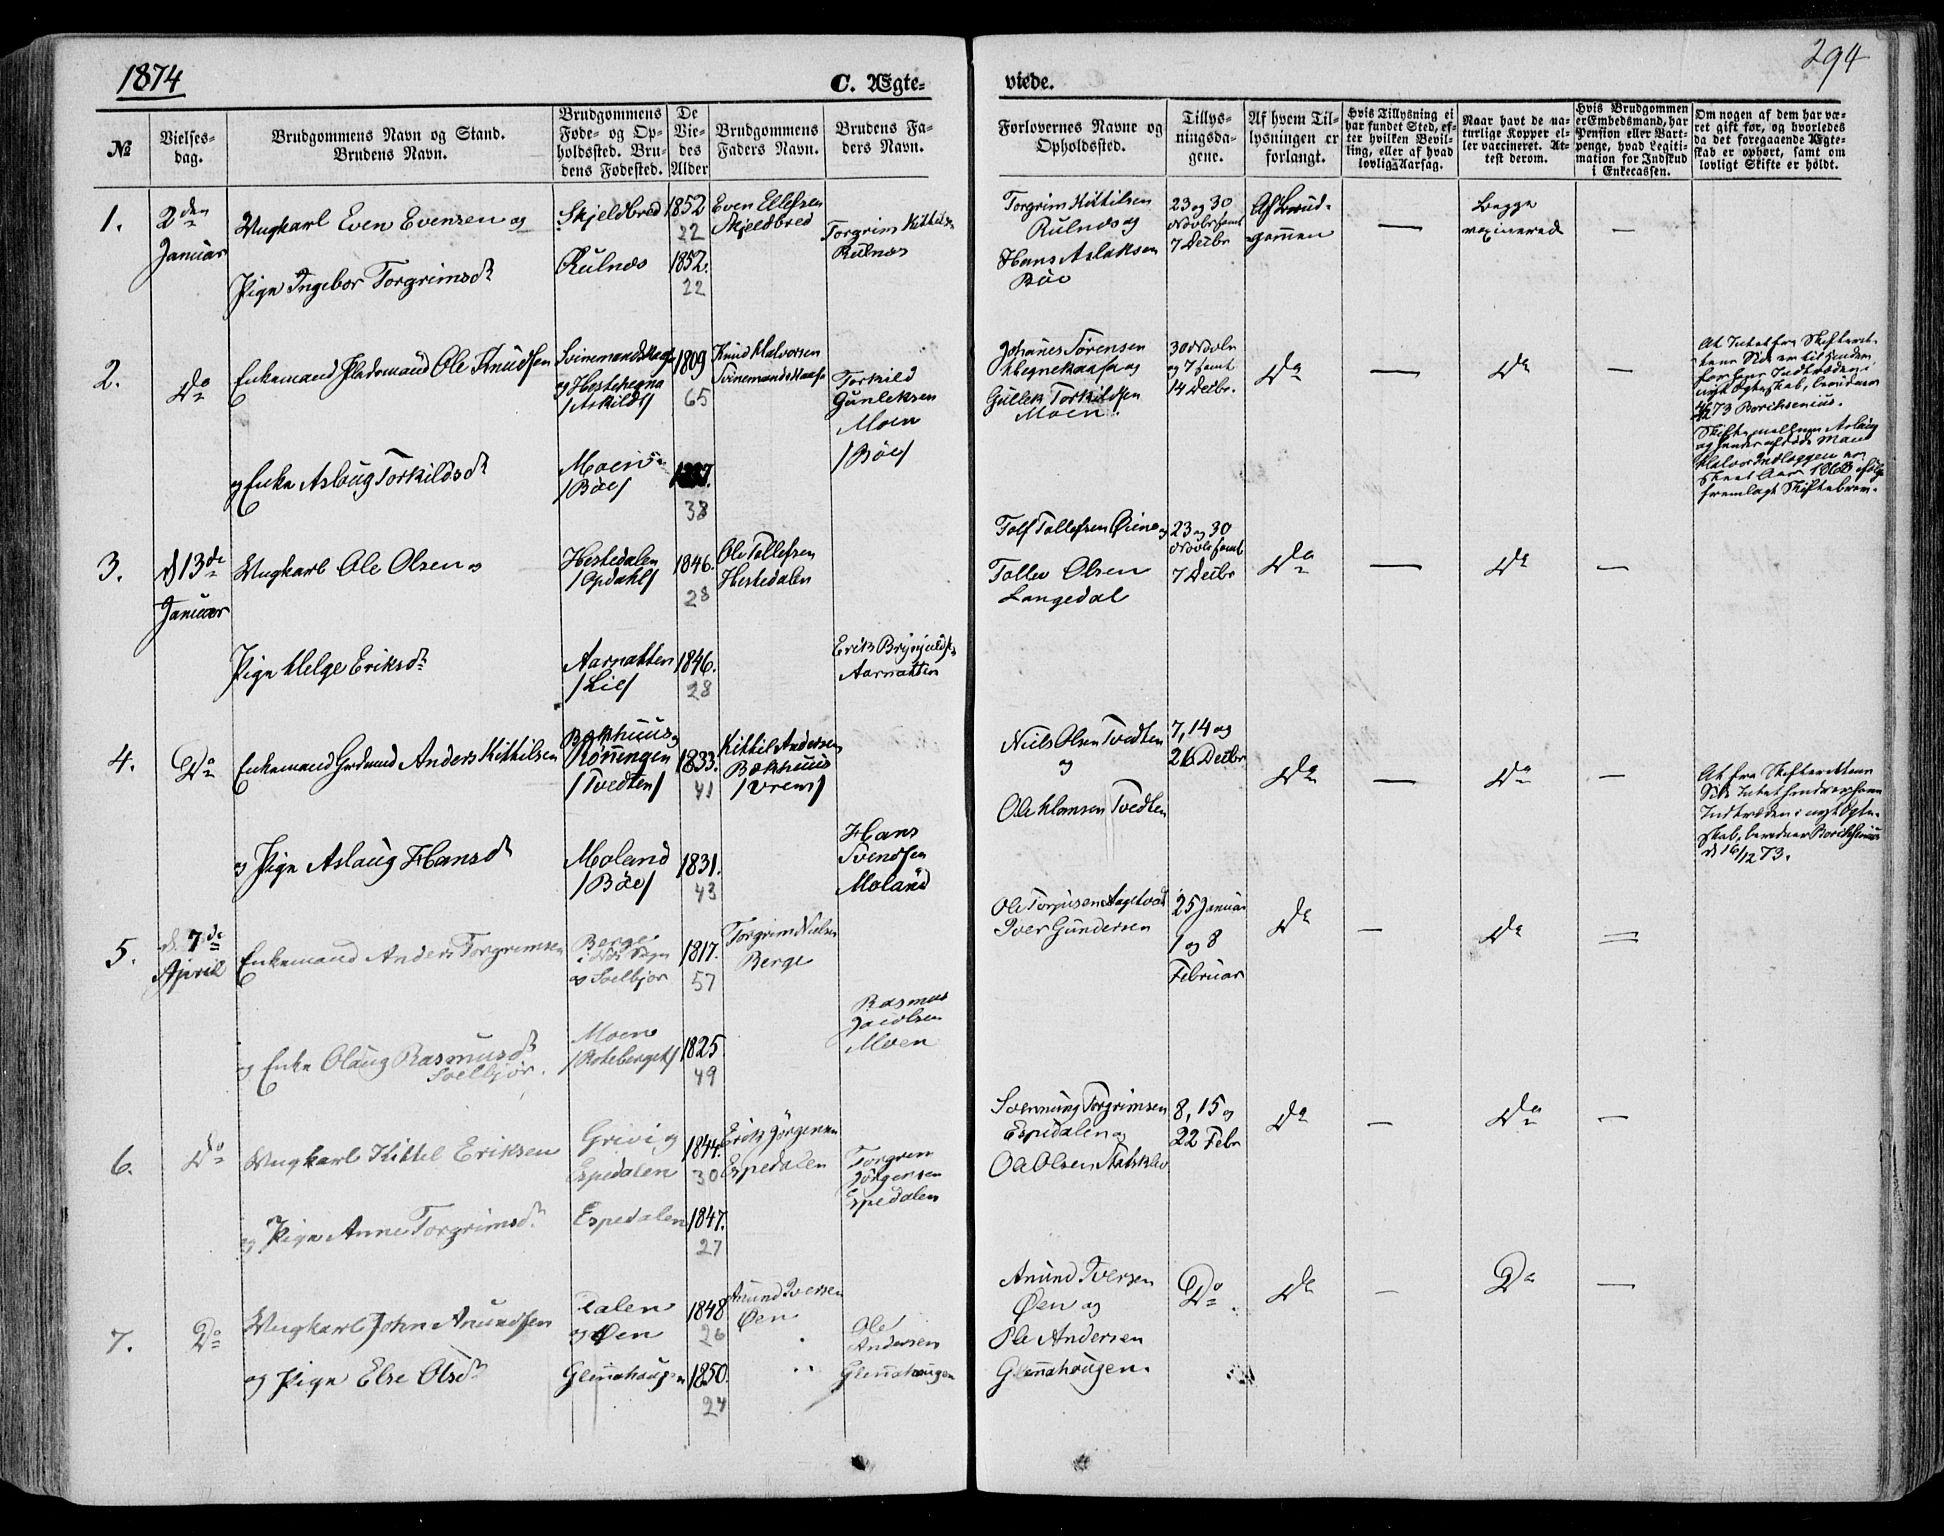 1874
C. Ægte-
viede.
294
№
Vielses-
dag.
Brudgommens Navn og Stand.
Brudens Navn.
Brudgommens
Føde- og Op-
holdssted. Bru-
dens Fødested.
De
Vie-
des
Alder
Brudgommens
Faders Navn.
Brudens Fa-
ders Navn.
Forlovernes Navne og
Opholdssted.
Tillys-
ningsda-
gene.
Af hvem Til-
lysningen er
forlangt.
Hvis Tillysning ei
har fundet Sted, ef-
ter hvilken Bevil-
ling, eller af hvad
lovlig Aarsag.
Naar havt de na-
turlige Kopper el-
ler vaccineret. At-
test derom.
Hvis Brudgommen
er Embedsmand, har
Pension eller Vart-
penge, hvad Legiti-
mation for Indskud
i Enkecassen.
Om nogen af dem har væ-
ret gift før, og hvorledes
da det foregaaende Ægte-
skab er ophørt, samt om
lovligt Skifte er holdt.
1.
2den
Januar
Ungkarl Even Evensen og
Pige Ingebor Torgrimsdr
Skjeldbred
Rulnæs
1852
22
1852.
22
Even Ellefsen
Skjeldbred
Torgrim Kittils
Rulnæs
Torgrim Kittilsen
Rulnæs og
Hans Aslaksen
Bøe
23 og 30
Novbr samt
7 Decbr
Af Brud-
gommen
—
Begge
vaxinered
—
2.
Do
Enkemand Pladsmand Ole Knudsen
og Enke Aslaug Torkildsdr
Svinemandskaasa
og Hestehegna
/Askilds/
Moen
/Bøe/
1809
65
1837.
38
Knud Halvorsen
Svinemandskaasa
Torkild
Gunleksen
Moen
/Bøe/
Johanes Sörensen
og
Gullek Torkildsen
Moen
30 Novbr
og 7 samt
14 Decbr.
Do
—
Do
—
At Intet fra Skifteret-
tens Side er til Hinder
for hans Indtræden i
nyt Ægteskab, bevidner
73 Borchsenius.
Skifte mellem Aslaug
og hendes afdøde Mand
Halvor er
skeet Aar 1868 ifølge
fremlagt Skiftebrev.
3.
d 13de
Januar
Ungkarl Ole Olsen og
Pige Helge Eriksdr
Hestedalen
/Opdahl/
Aarnatten
/Lie/
1846.
28
1846.
28
Ole Tollefsen
Hestedalen
Erik Brynjulfs
Aarnatten
Tolf Tollefsen Øiene og
Tollev Olsen
Langedal
23 og 30
Novbr samt
7 Decbr
Do
—
Do
—
4.
Do
Enkemand Gardmand Anders Kittilsen
og Pige Aslaug Hansdr
Bakhuus og
Rønningen
/Tvedten/
Moland
/Bøe/
1833.
41
1831.
43
Kittil Andersen
Bakhuus
/Vreim/
Hans
Svendsen
Moland
Niels Olsen Tvedten
og
Ole Hansen Tvedten
7, 14 og
26 Decbr
Do
—
Do
—
At fra Skifterettens
Side Intet hindrer hans
Indtræden i nyt Ægte-
skab, bevidner Borchsenius
d 16/12 73.
5.
d. 7de
April
Enkemand Anders Torgrimsen
og Enke Olaug Rasmusdr
Solbjør.
Berge
og Solbjør
Moen
/Roteberget/
1817.
57
1825
49
Torgrim Nielsen
Berge
Rasmus
Jacobsen
Moen
Ole Torjusen
Iver Gundersen
25 Januar
1 og 8
Februar
Do
—
Do
—
6.
Do
Ungkarl Kittel Eriksen
og Pige Anne Torgrimsdr
Grivi og
Espedalen
Espedalen
1844.
30
1847.
27
Erik Jörgensen
Espedalen
Torgrim
Jörgensen
Espedalen
Svennung Torgrimsen
Espedalen og
Ole Olsen Statsklev
8, 15 og
22 Febr
Do
—
Do
—
7.
Do
Ungkarl John Anundsen
og Pige Else Olsdr
Dalen
og Øen
Glennehaugen
1848
26
1850.
24
Anund Iversen
Øen
Ole
Andersen
Glennehaugen
Anund Iversen
Øen og
Ole Andersen
Glennehaugen.
Do
Do
—
Do
—